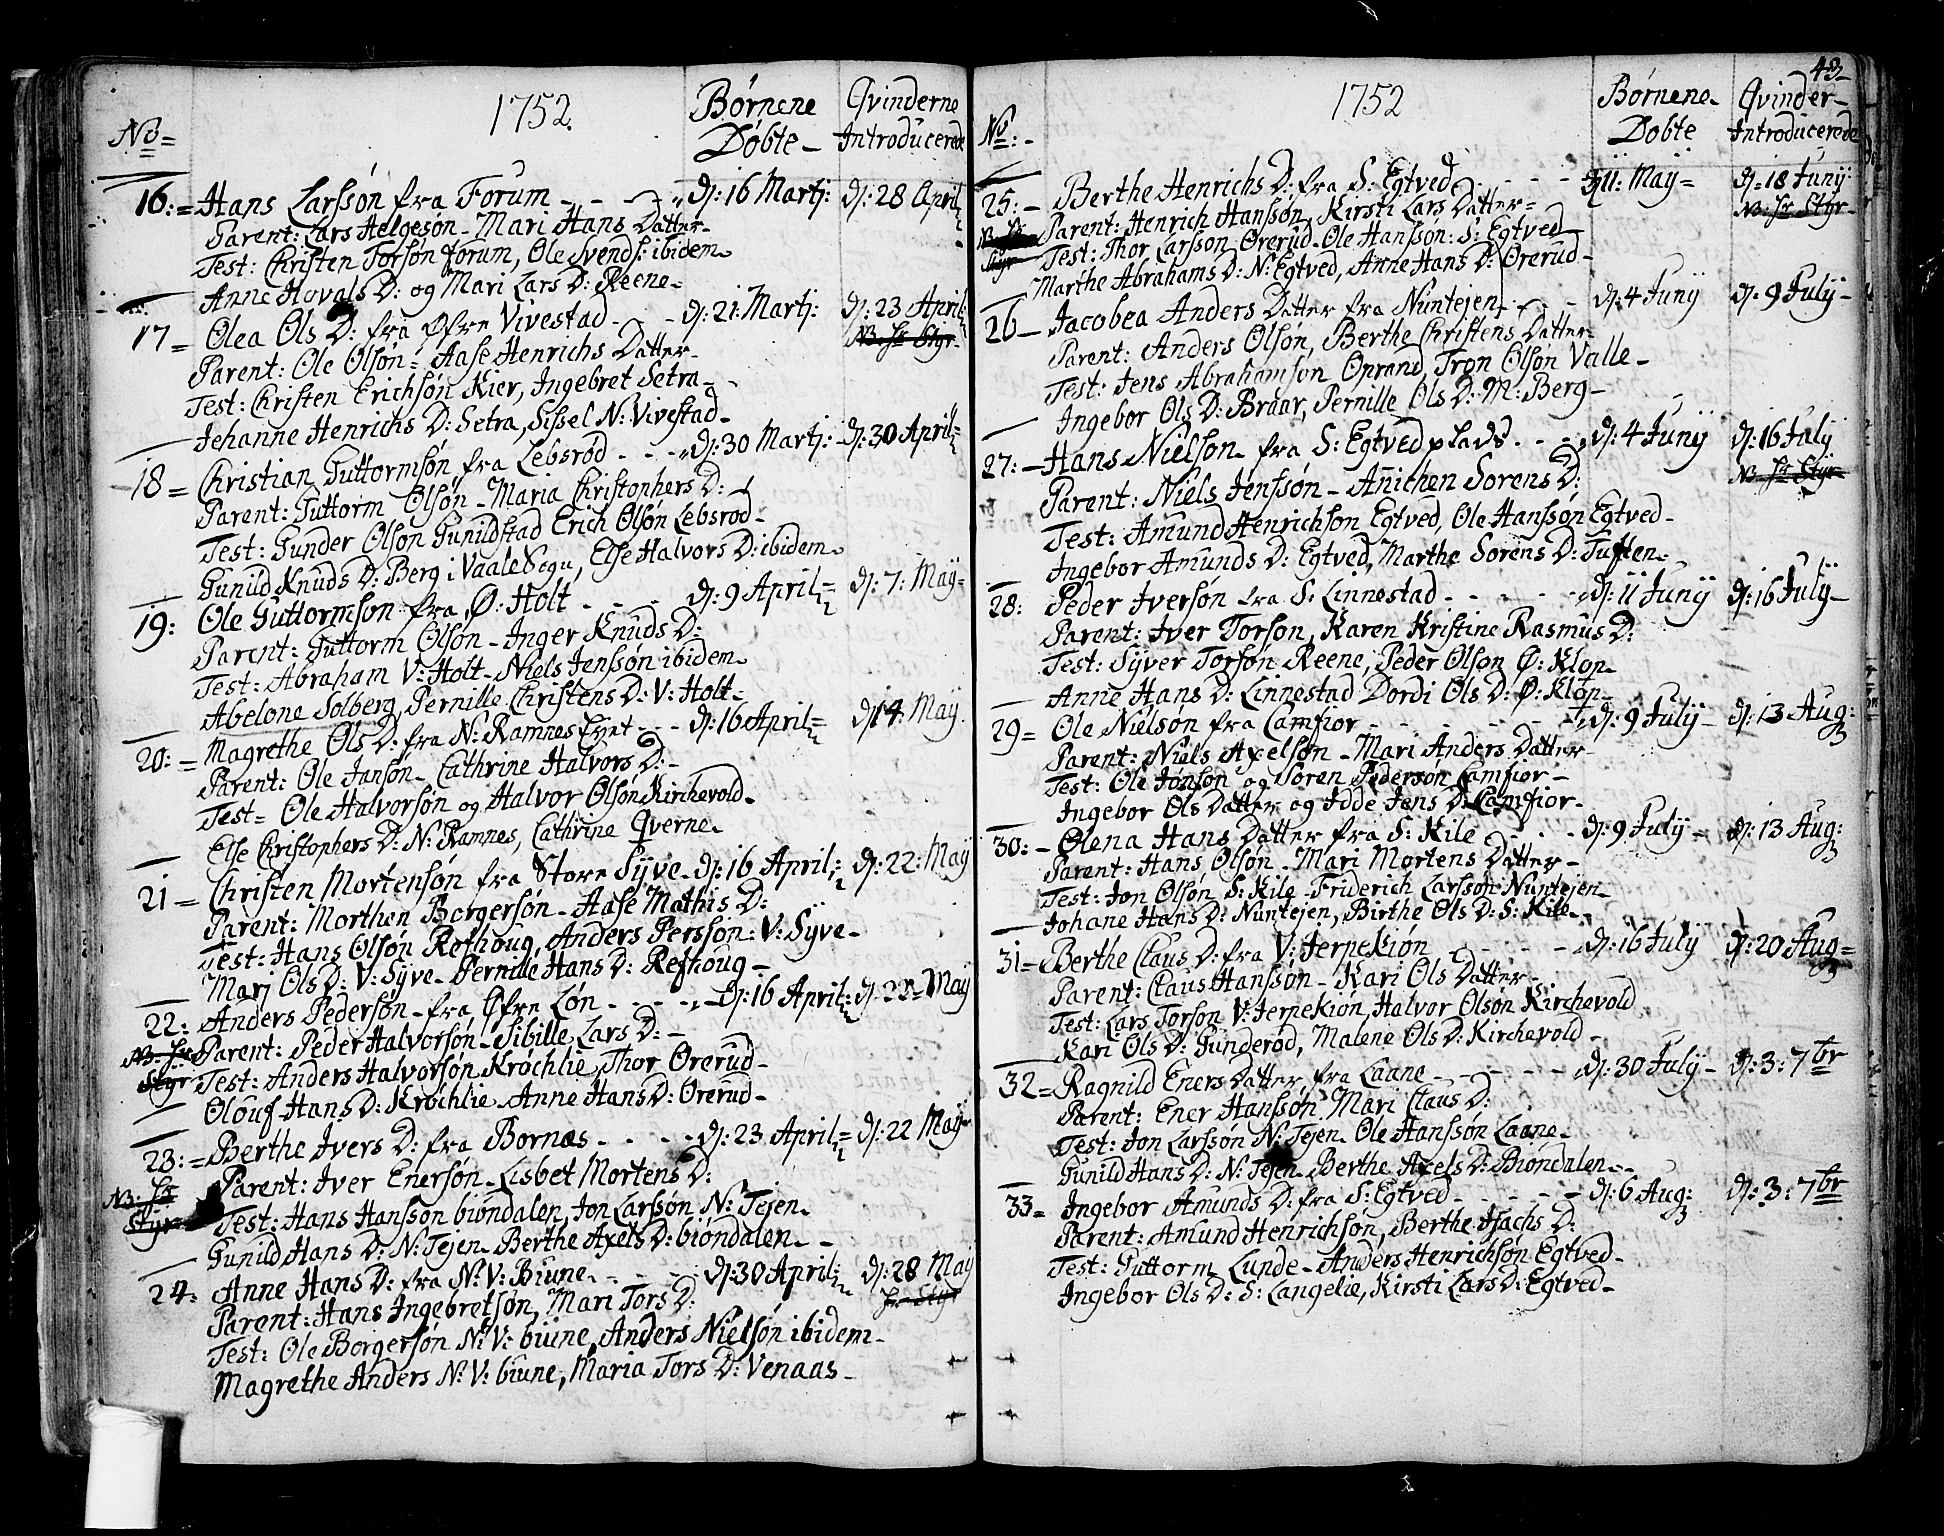 1752.
No= Børnene Døbte_ Qvinderne Introducerede
16:= Hans Larssøn fra Forum - - - dj: 16 Martj: dj: 28 April
Parent: Lars Helgesøn_ Mari Hans Datter_
Test: Christen Torsøn Forum, Ole Svends: ibidem_
Anne Hovals D: og Mari Lars D: Reene_
17= Olea Ols D: fra Øfre Vivestad_ - - dj: 21: Martj: dj: 23 April
NB: Sr Styr
Parent: Ole Olsøn= Aase Henrichs Datter_
Test: Christen Erichsøn Kier, Ingebret Setra_
Jehanne Henrichs D: Setra, Sissel N: Vivestad_
18= Christian Guttormsøn fra Lebsrød - - - dj: 30 Martj: dj: 30 April
Parent: Guttorm Olsøn_ Maria Christophers D:
Test: Gunder Olsøn Gunildstad Erich Olsøn Lebsrød_
Gunild Knuds D: Berg i Vaale Sogn, Else Halvors D: ibidem_
19: Ole Guttormson fra Ø: Holt - - - dj: 9 April= dj: 7: May=
Parent: Guttorm Olsøn_ Inger Knuds D:
Test: Abraham V: Holt_ Niels Jenssøn ibidem_
Abelone Solberg, Pernille Christens D: V: Holt_
20:= Magrethe Ols D: fra N: Ramnes Eyet - - dj: 16 April= dj: 14 May.
Parent: Ole Jansøn_ Cathrine Halvors D:_
Test= Ole Halvorsøn og Halvor Olsøn Kirchevold_
Else Christophers D: N: Ramnes, Cathrine Qverne_
21= Christen Mortensøn fra Store Syve_ dj: 16 April: dj: 22: May
Parent: Morthen Borgersøn_ Aase Mathis D:
Test: Hans Olsøn Refhoug, Anders Perssøn: V: Syve_
Marj Ols D: V: Syve_ Pernille Hans D: Refhoug_
22: Anders Pedersøn_ fra Øfre Løn - - - dj: 16 April: dj: 22 May
NB: Sr Styr
Parent: Peder Halvorsøn_ Sibille Lars D:_
Test: Anders Halvorsøn Krøchlie, Thor Orerud_
Olouf Hans D: Krøchlie_ Anne Hans D: Orerud_
23:= Berthe Ivers D: fra Bornæs - - - dj: 23 April= dj: 22 May
NB: Sr Styr
Parent: Iver Enersøn_ Lisbet Mortens D:
Test: Hans Hansson biøndalen, Jon Larssøn N: Tejen_
Gunild Hans D: N: Tejen_ Berthe Axels D: biøndalen_
24: Anne Hans D: fra N: V: Biune_ - - - dj: 30 April: dj: 28 May
Sr Styr
Parent: Hans Ingebretsøn, Mari Tors D:
Test: Ole Borgersøn N: V: biune, Anders Nielsøn ibidem_
Magrethe Anders N: V: biune, Maria Tors D: Venaas_
43_
1752
No:- Børnene_ Døbte Qvinder_ Introducerede
25:- Berthe Henrichs D: fra S: Egtved - - - - dj 11: May= dj: 18 Juny:
NB: Sr Styr
NB: Sr Styr
Parent: Henrich Hanssøn, Kirsti Lars Datter=
Test: Thor Larsson Orerud_ Ole Hansson: S: Egtved_
Marthe Abrahams D: N: Egtved, Anne Hans D: Orerud_
26_ Jacobea Anders Datter fra Nuntejen - - - dj: 4 Juny dj: 9 July_
Parent: Anders Olsøn, Berthe Christens Datter_
Test: Jens Abrahamsøn Oprand, Tron Olsøn Valle_
Ingebor Ols D: Braar, Pernille Ols D: M: Berg_
27:_ Hans Nielson_ fra S: Egtved plads - - - dj: 4 Juny dj: 16 July
NB: Sr Styr
Parent: Niels Jenssøn_ Anichen Sorens D:
Test: Amund Henrichson Egtved, Ole Hanssøn Egtved_
Ingebor Amunds D: Egtved, Marthe Sorens D: Tuften_
28: Peder Iversøn fra S: Linnestad - - - - dj: 11 Juny dj: 16 July_
Parent: Iver Torson, Karen Kristine Rasmus D:
Test: Syver Torsøn Reene, Peder Olson Ø: Klop_
Anne Hans D: Linnestad Dordi Ols D: Ø: Klop_
29= Ole Nielson fra Camfior - - - - - dj: 9 July_ dj: 13 Aug:
Parent: Niels Axelsøn_ Mari Anders Datter
Test: Ole Jonsøn og Soren Pedersøn Camfior_
Ingebor Ols Datter og Idde Jens D: Camfior_
30:_ Olena Hans Datter fra S: Kile - - - dj: 9 July= dj: 13 Aug:
Parent: Hans Olsøn_ Mari Mortens Datter_
Test: Jon Olsøn S: Kile_ Friderich Larssøn Nuntejen_
Johane Hans D: Nuntejen, Birthe Ols D: S: Kile_
31= Berthe Claus D: fra V: Jerpekiøn - - - - dj: 16 July dj: 20 Aug=
Parent: Claus Hansson_ Kari Ols Datter_
Test: Lars Torson V: Jerpekiøn, Halvor Olsøn Kirchevold
Kari Ols D: Gunderød, Malene Ols D: Kirchevold_
32= Ragnild Eners Datter fra Laane - - - - dj: 30 July_ dj: 3: 7br
Parent: Ener Hanssøn Mari Claus D:
Test: Jon Larssøn N: Tejen_ Ole Hanssøn Laane_
Gunild Hans D: N: Tejen_ Berthe Axels D: Biøndalen_
33= Ingebor Amunds D: fra S: Egtved - - - - dj: 6 Aug: dj: 3: 7br
Parent: Amund Henrichsøn, Berthe Isachs D:
Test: Guttorm Lunde_ Anders Henrichsøn Egtved_
Ingebor Ols D: S: Langelie, Kirsti Lars D: Egtved_